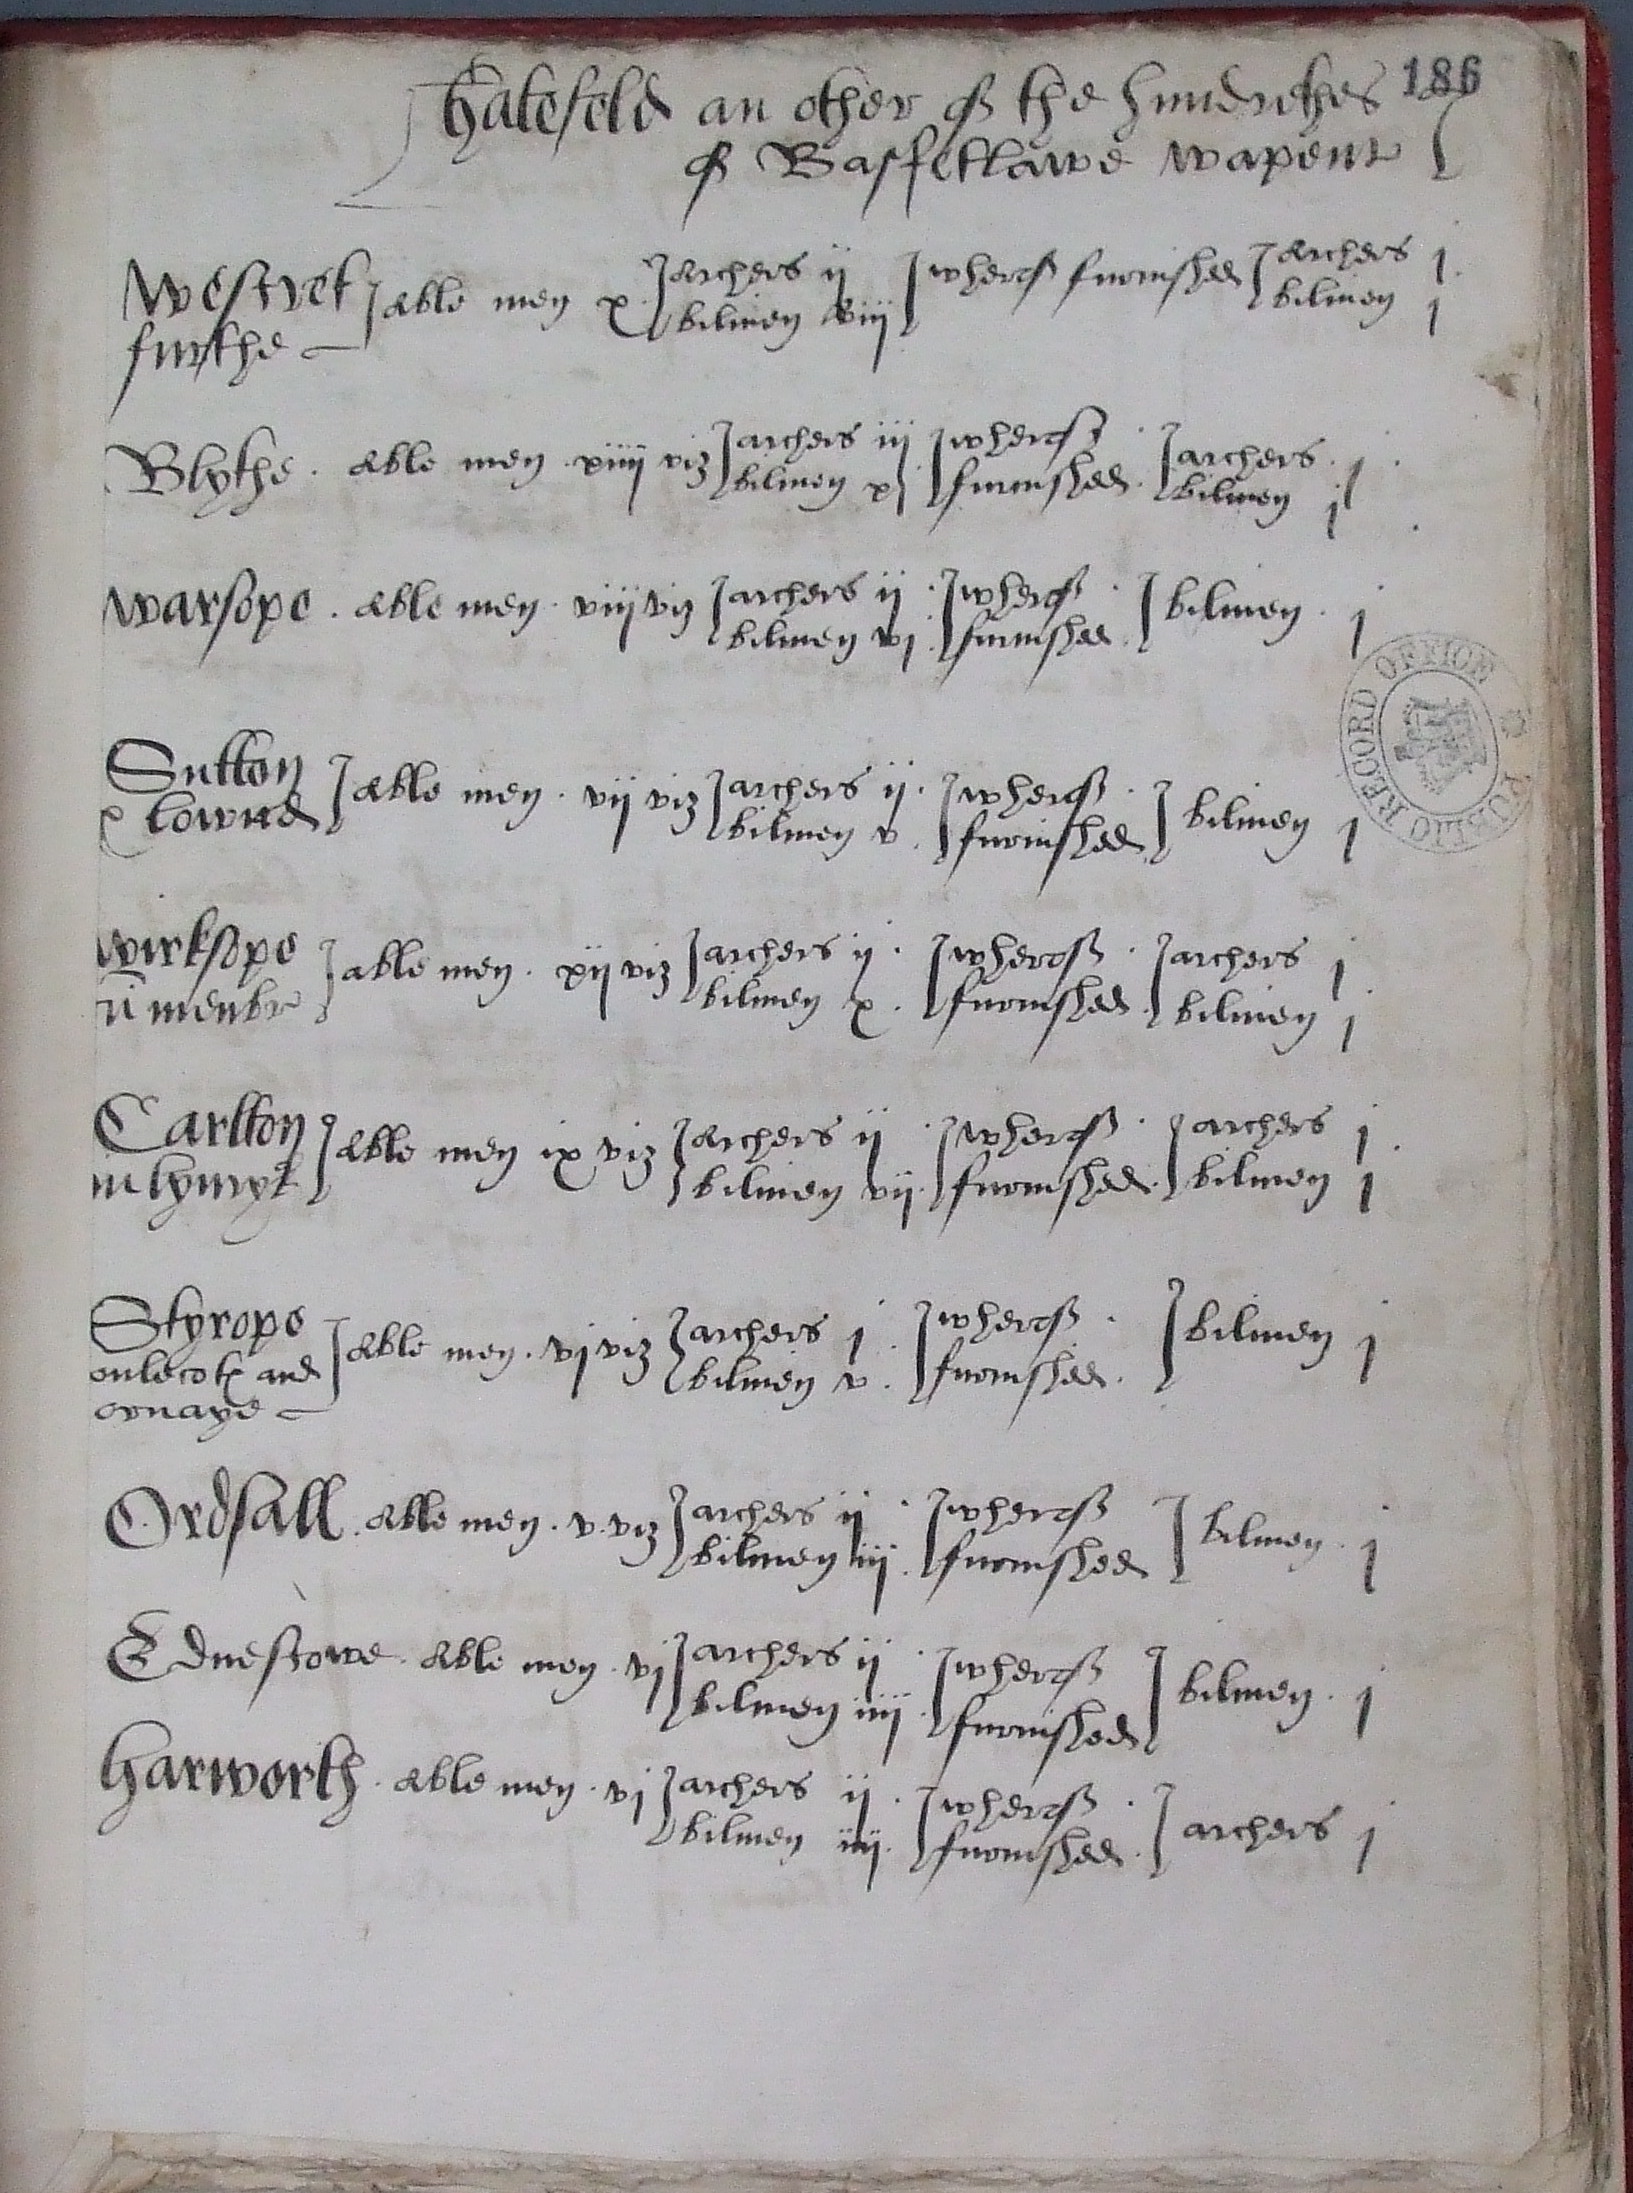 186
Hatefeld an other of the hundrethes
of Bassetlawe wapent
Westret
furthe
able men x
archers ij
bilmen viij
wherof furnished
archers j
bilmen j
Blythe. able men xiiij viz
archers iij
bilmen xj
wherof
furnished
archers j
bilmen j
Warsope. able men viij viz
archers ij
bilmen vj
wherof
furnished
bilmen j
Sutton
x lownd
able men vij viz
archers ij
bilmen v
wherof
furnished
bilmen j
Wirksope
cu menbr
able men xij viz
archers ij
bilmen x
wherof
furnished
archers j
bilmen j
Carlton
in lymryk
able men ix viz
archers ij
bilmen vij
wherof
furnished
archers j
bilmen j
Styrope
oulecot and
able men vj viz
archers j
bilmen v
wherof
furnished
bilmen j
Ordsall. able men v viz
archers ij
bilmen iiij
wherof
furnished
bilmen j
Ednestowe. able men vj
archers ij
bilmen iiij
wherof
furnished
bilmen j
Harworth. able men vj
archers ij
bilmen iiij
wherof
furnished
archers j
PUBLIC RECORD OFFICE